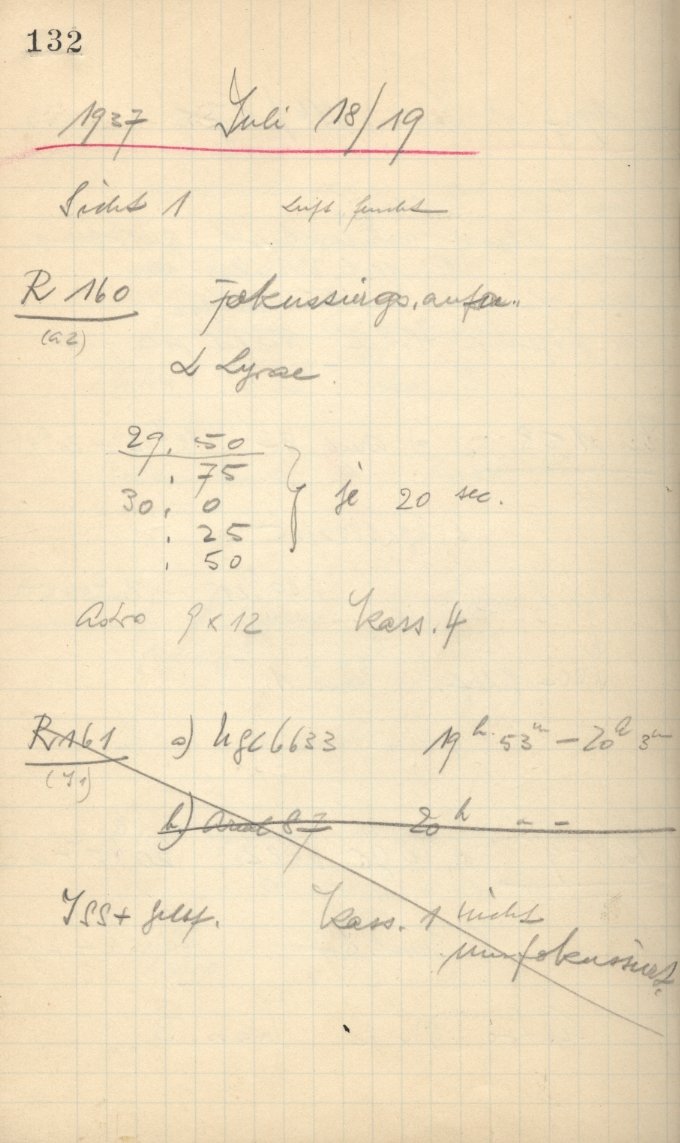 132
1937 Juli 18/19
Sicht 1 Luft feucht
R 160 Fokussiergs. aufn.
(a2)
α Lyrae
29. 50
. 75
30. 0
. 25
. 50
je 20 sec.
Astro 9 x 12 Kass. 4
R 161 a) Ngc 6633 19h 53m – 20h 3m
b) 87 20h - -
ISS + Kass. 1 nicht
umfokussiert.